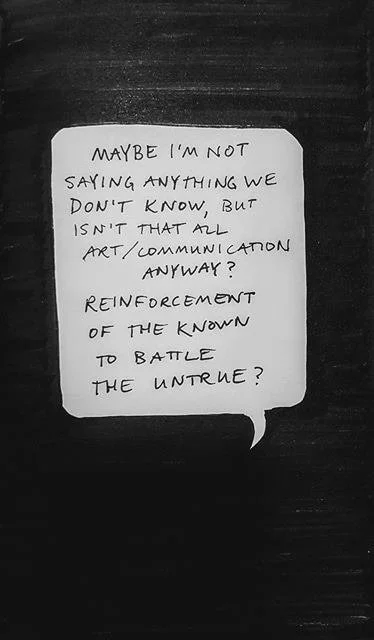 MAYBE I'M NOT
SAYING ANYTHING WE
DON'T KNOW, BUT
ISN'T THAT ALL
ART/COMMUNICATION
ANYWAY?
REINFORCEMENT
OF THE KNOWN
TO BATTLE
THE UNTRUE?